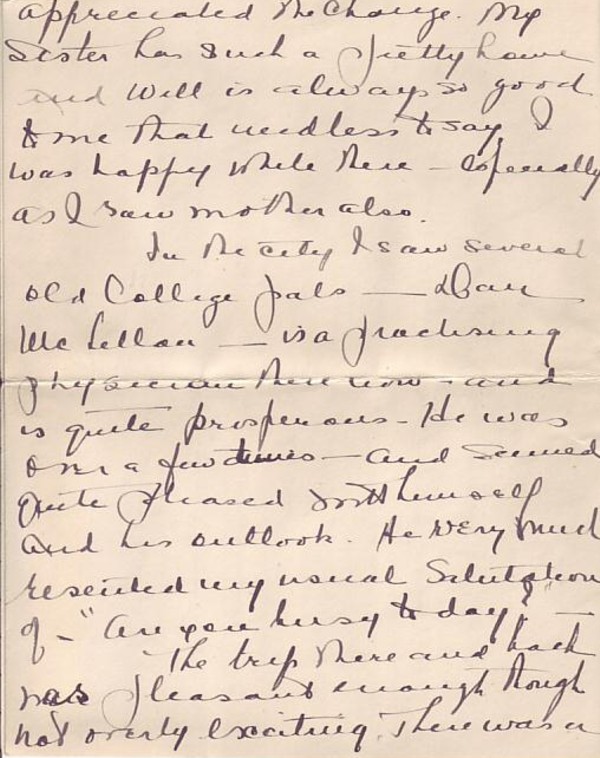 appreciated the change. My
Sister has such a pretty home
and Will is always so good
to me that needless to say, I
was happy while there - especially
as I saw mother also.
In the city I saw several
old College pals — Dan
McLellan — is a practising
physician there now - and
is quite prosperous - He was
over a few times - and seemed
quite pleased with himself
and his outlook. He very much
resented my usual Salutation
of - "Are you busy to day?" —
The trip there and back
was pleasant enough though
not overly exciting. There was a